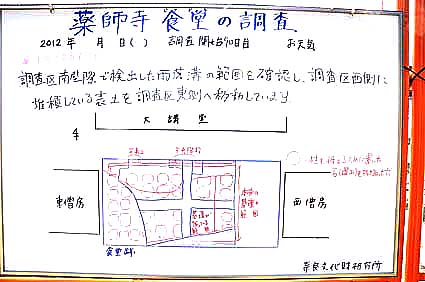 薬師寺 食堂の調査
2012年 月 日( ) 調査開始90日目 お天気
調査区南壁際で検出した雨落溝の範囲を確認し、調査区西側に
堆積している表土を調査区東側へ移動しています
大講堂
東僧房
西僧房
食堂跡
奈良文化財研究所